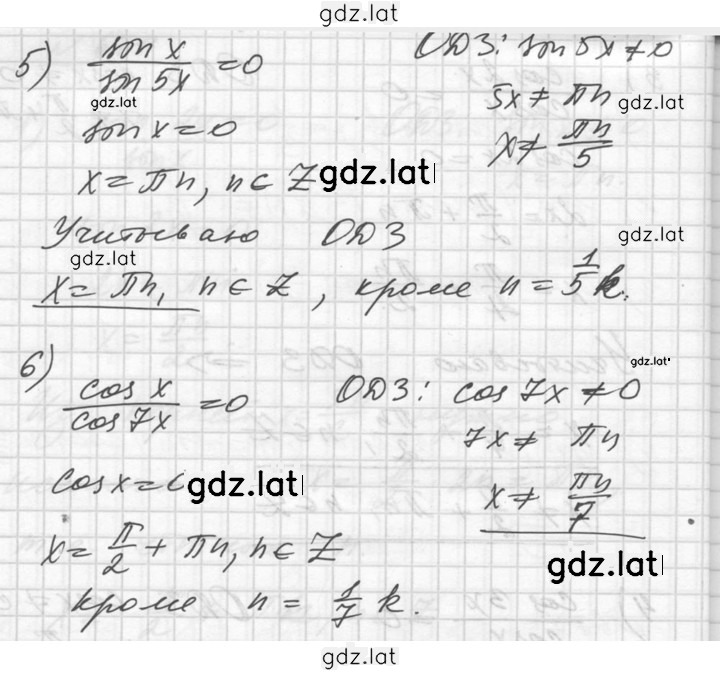 gdz.lat
5) sin x / sin 5x = 0
ОДЗ: sin 5x ≠ 0
gdz.lat
5x ≠ πn
gdz.lat
sin x = 0
x ≠ πn / 5
x = πn, n ∈ Z
gdz.lat
Учитываю ОДЗ
gdz.lat
gdz.lat
x = πn, n ∈ Z, кроме n = 1/5 k.
gdz.lat
6) cos x / cos 7x = 0
ОДЗ: cos 7x ≠ 0
7x ≠ πn
cos x =
gdz.lat
x ≠ πn / 7
x = π/2 + πn, n ∈ Z
gdz.lat
кроме n = 1/7 k.
gdz.lat